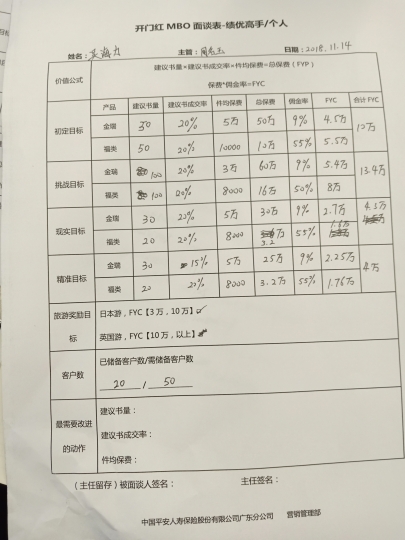 开门红 MBO 面谈表-绩优高手/个人
姓名： 主管： 日期：2018.11.14
价值公式 建议书量×建议书成交率×件均保费=总保费（FYP）
保费*佣金率=FYC
产品 建议书量 建议书成交率 件均保费 总保费 佣金率 FYC 合计 FYC
初定目标 金瑞 50 20% 5万 50万 9% 4.5万 10万
福类 50 20% 10000 10万 55% 5.5万
挑战目标 金瑞 100 20% 3万 60万 9% 5.4万 13.4万
福类 100 20% 8000 16万 50% 8万
现实目标 金瑞 30 20% 5万 30万 9% 2.7万 4.3万
福类 20 20% 8000 3.2万 55% 1.6万
精准目标 金瑞 30 15% 5万 25万 9% 2.25万 4万
福类 20 20% 8000 3.2万 55% 1.76万
旅游奖励目标 日本游，FYC【3 万，10 万】✓
英国游，FYC【10 万，以上】
客户数 已储备客户数/需储备客户数
20 / 50
最需要改进的动作 建议书量：
建议书成交率：
件均保费：
（主任留存）被面谈人签名： 主任签名：
中国平安人寿保险股份有限公司广东分公司 营销管理部